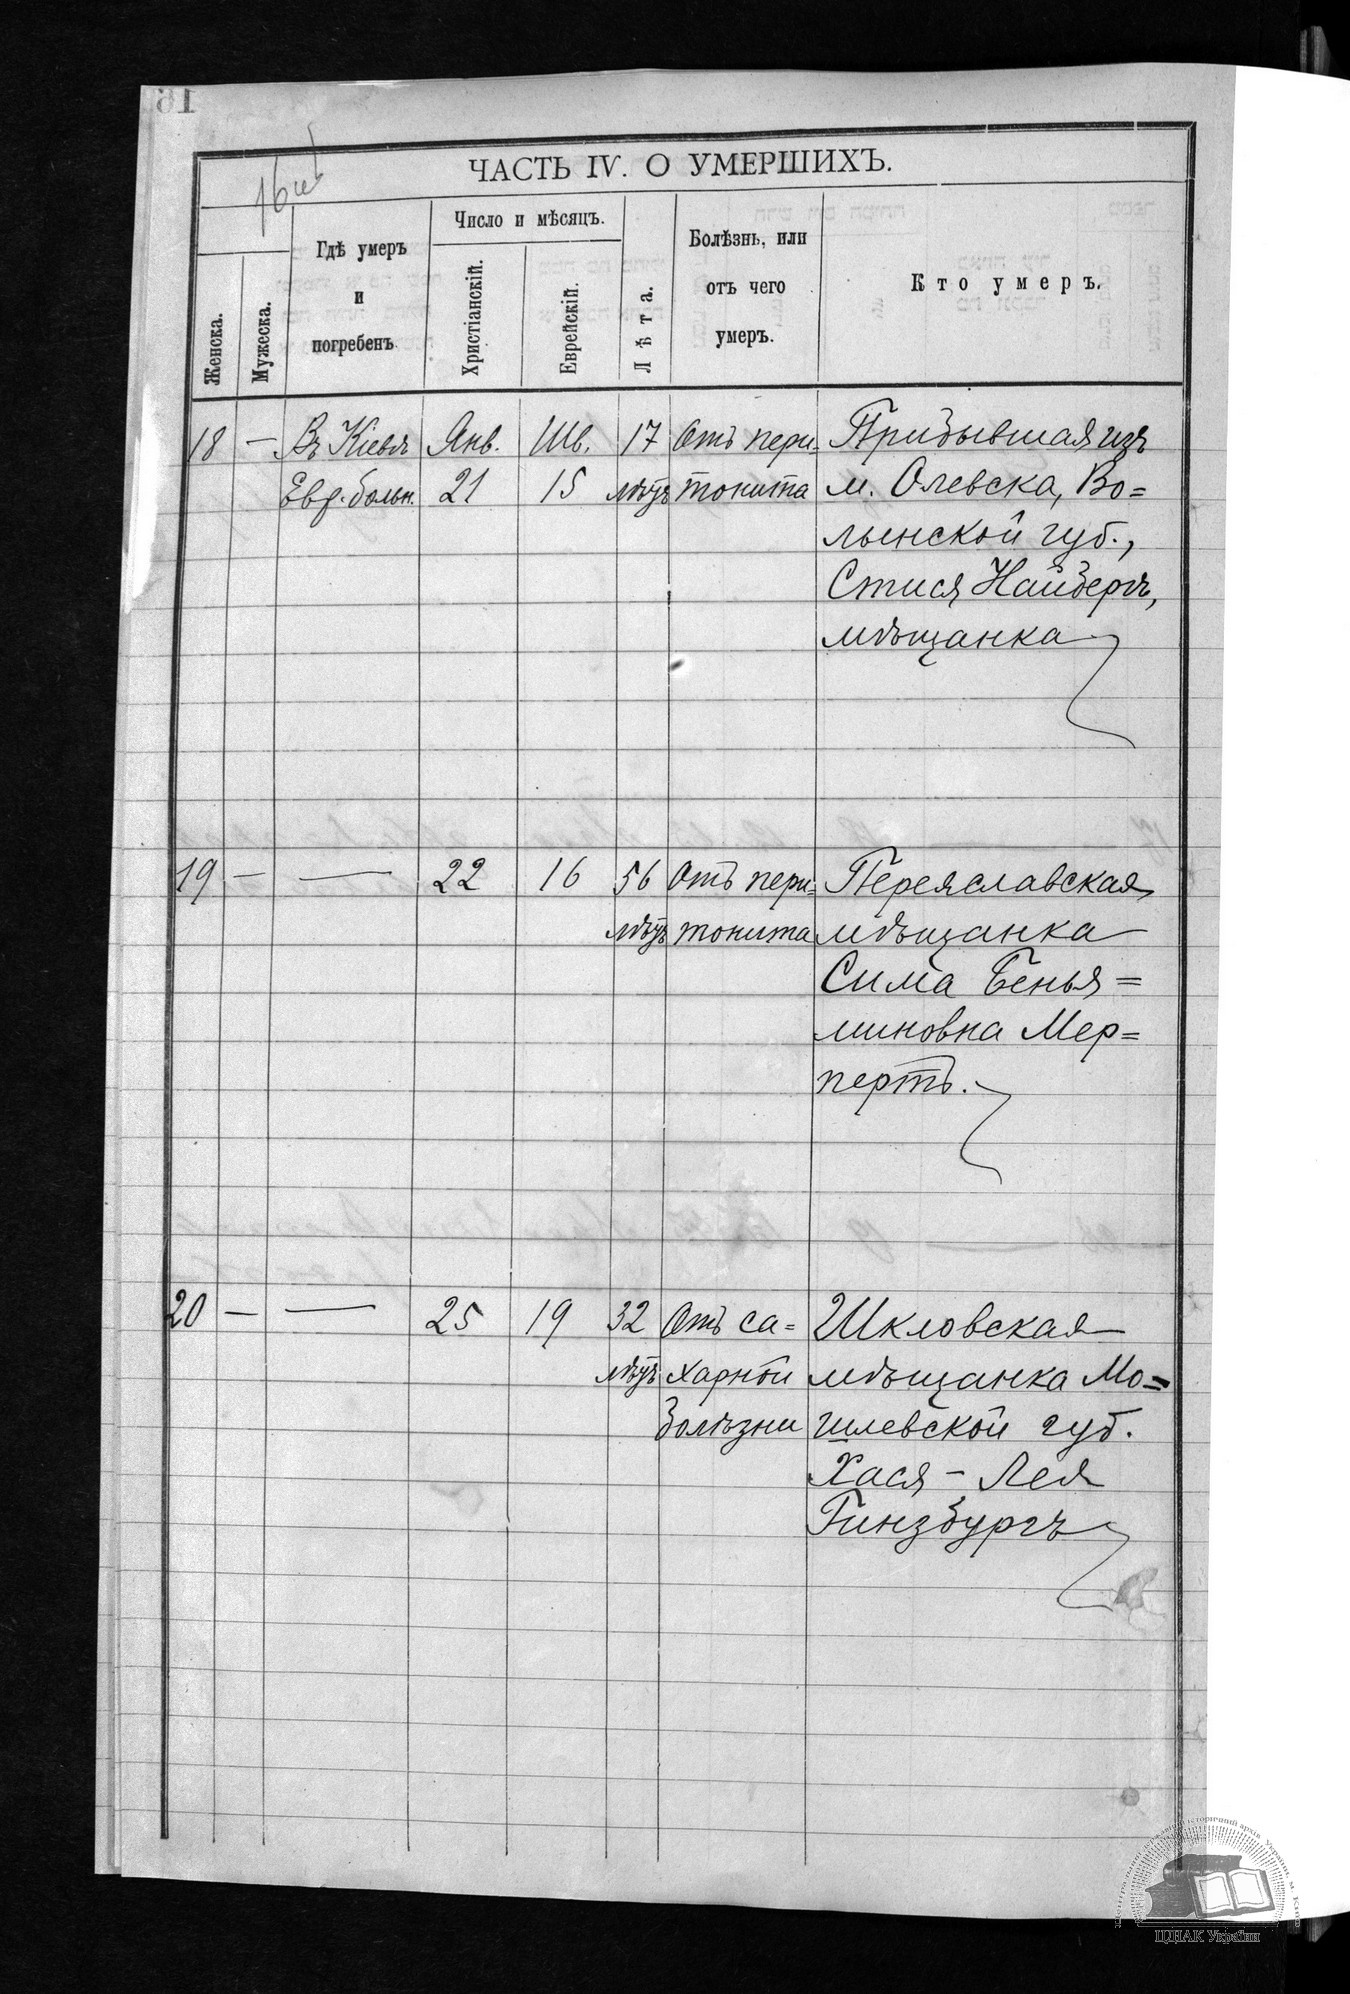 ЧАСТЬ IV. О УМЕРШИХЪ.
Женска.
Мужеска.
Гдѣ умеръ
и
погребенъ
Число и мѣсяцъ.
Христіанскій.
Еврейскій.
Лѣта.
Болѣзнь, или
отъ чего
умеръ.
Кто умеръ.
18 — Въ Кіевѣ Янв. Шв. 17 Отъ пери= Прибывшая изъ
Евр. больн. 21 15 лѣтъ тонита м. Олевска, Во=
лынской губ.,
Стися Найбергъ,
мѣщанка
19 — — 22 16 56 Отъ пери= Переяславская
лѣтъ тонита мѣщанка
Сима Бенья=
миновна Мер=
пертъ.
20 — — 25 19 32 Отъ са= Шкловская
лѣтъ харной мѣщанка Мо=
болѣзни гилевской губ.
Хася - Лея
Гинзбургъ
ЦДІАК України